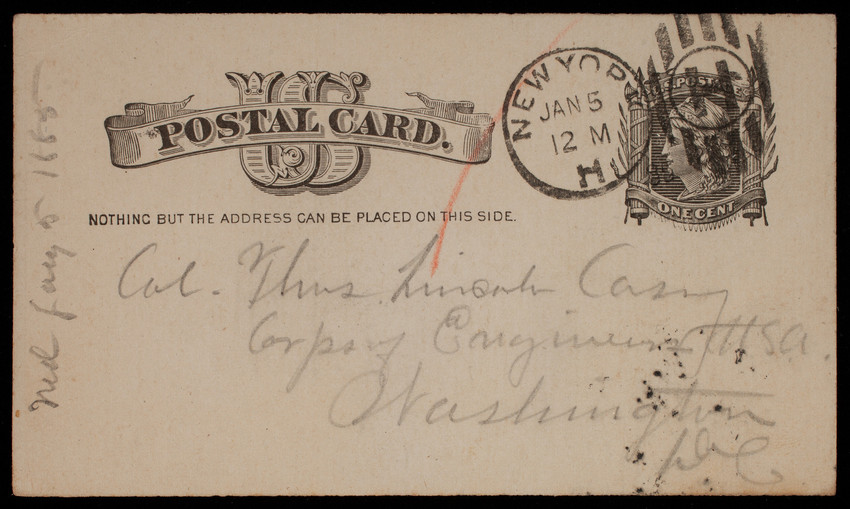 US
POSTAL CARD.
NOTHING BUT THE ADDRESS CAN BE PLACED ON THIS SIDE.
NEW YORK
JAN 5
12 M
H
U.S. POSTAGE
ONE CENT
Col. Thos. Lincoln Casey
Corps of Engineers USA.
Washington
D.C
Jany 5 1885